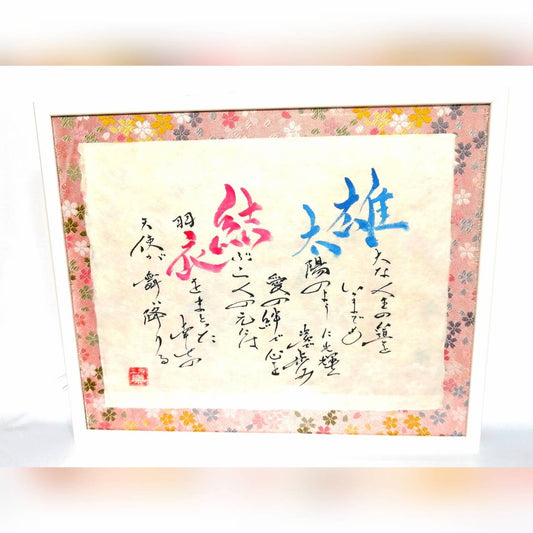 雄大な人生の道を
いつまでも
太陽のように光輝き
歩み
愛の絆で心を
結ぶ二人の元へ
羽衣をまとった
幸せの
天使が舞い降りる